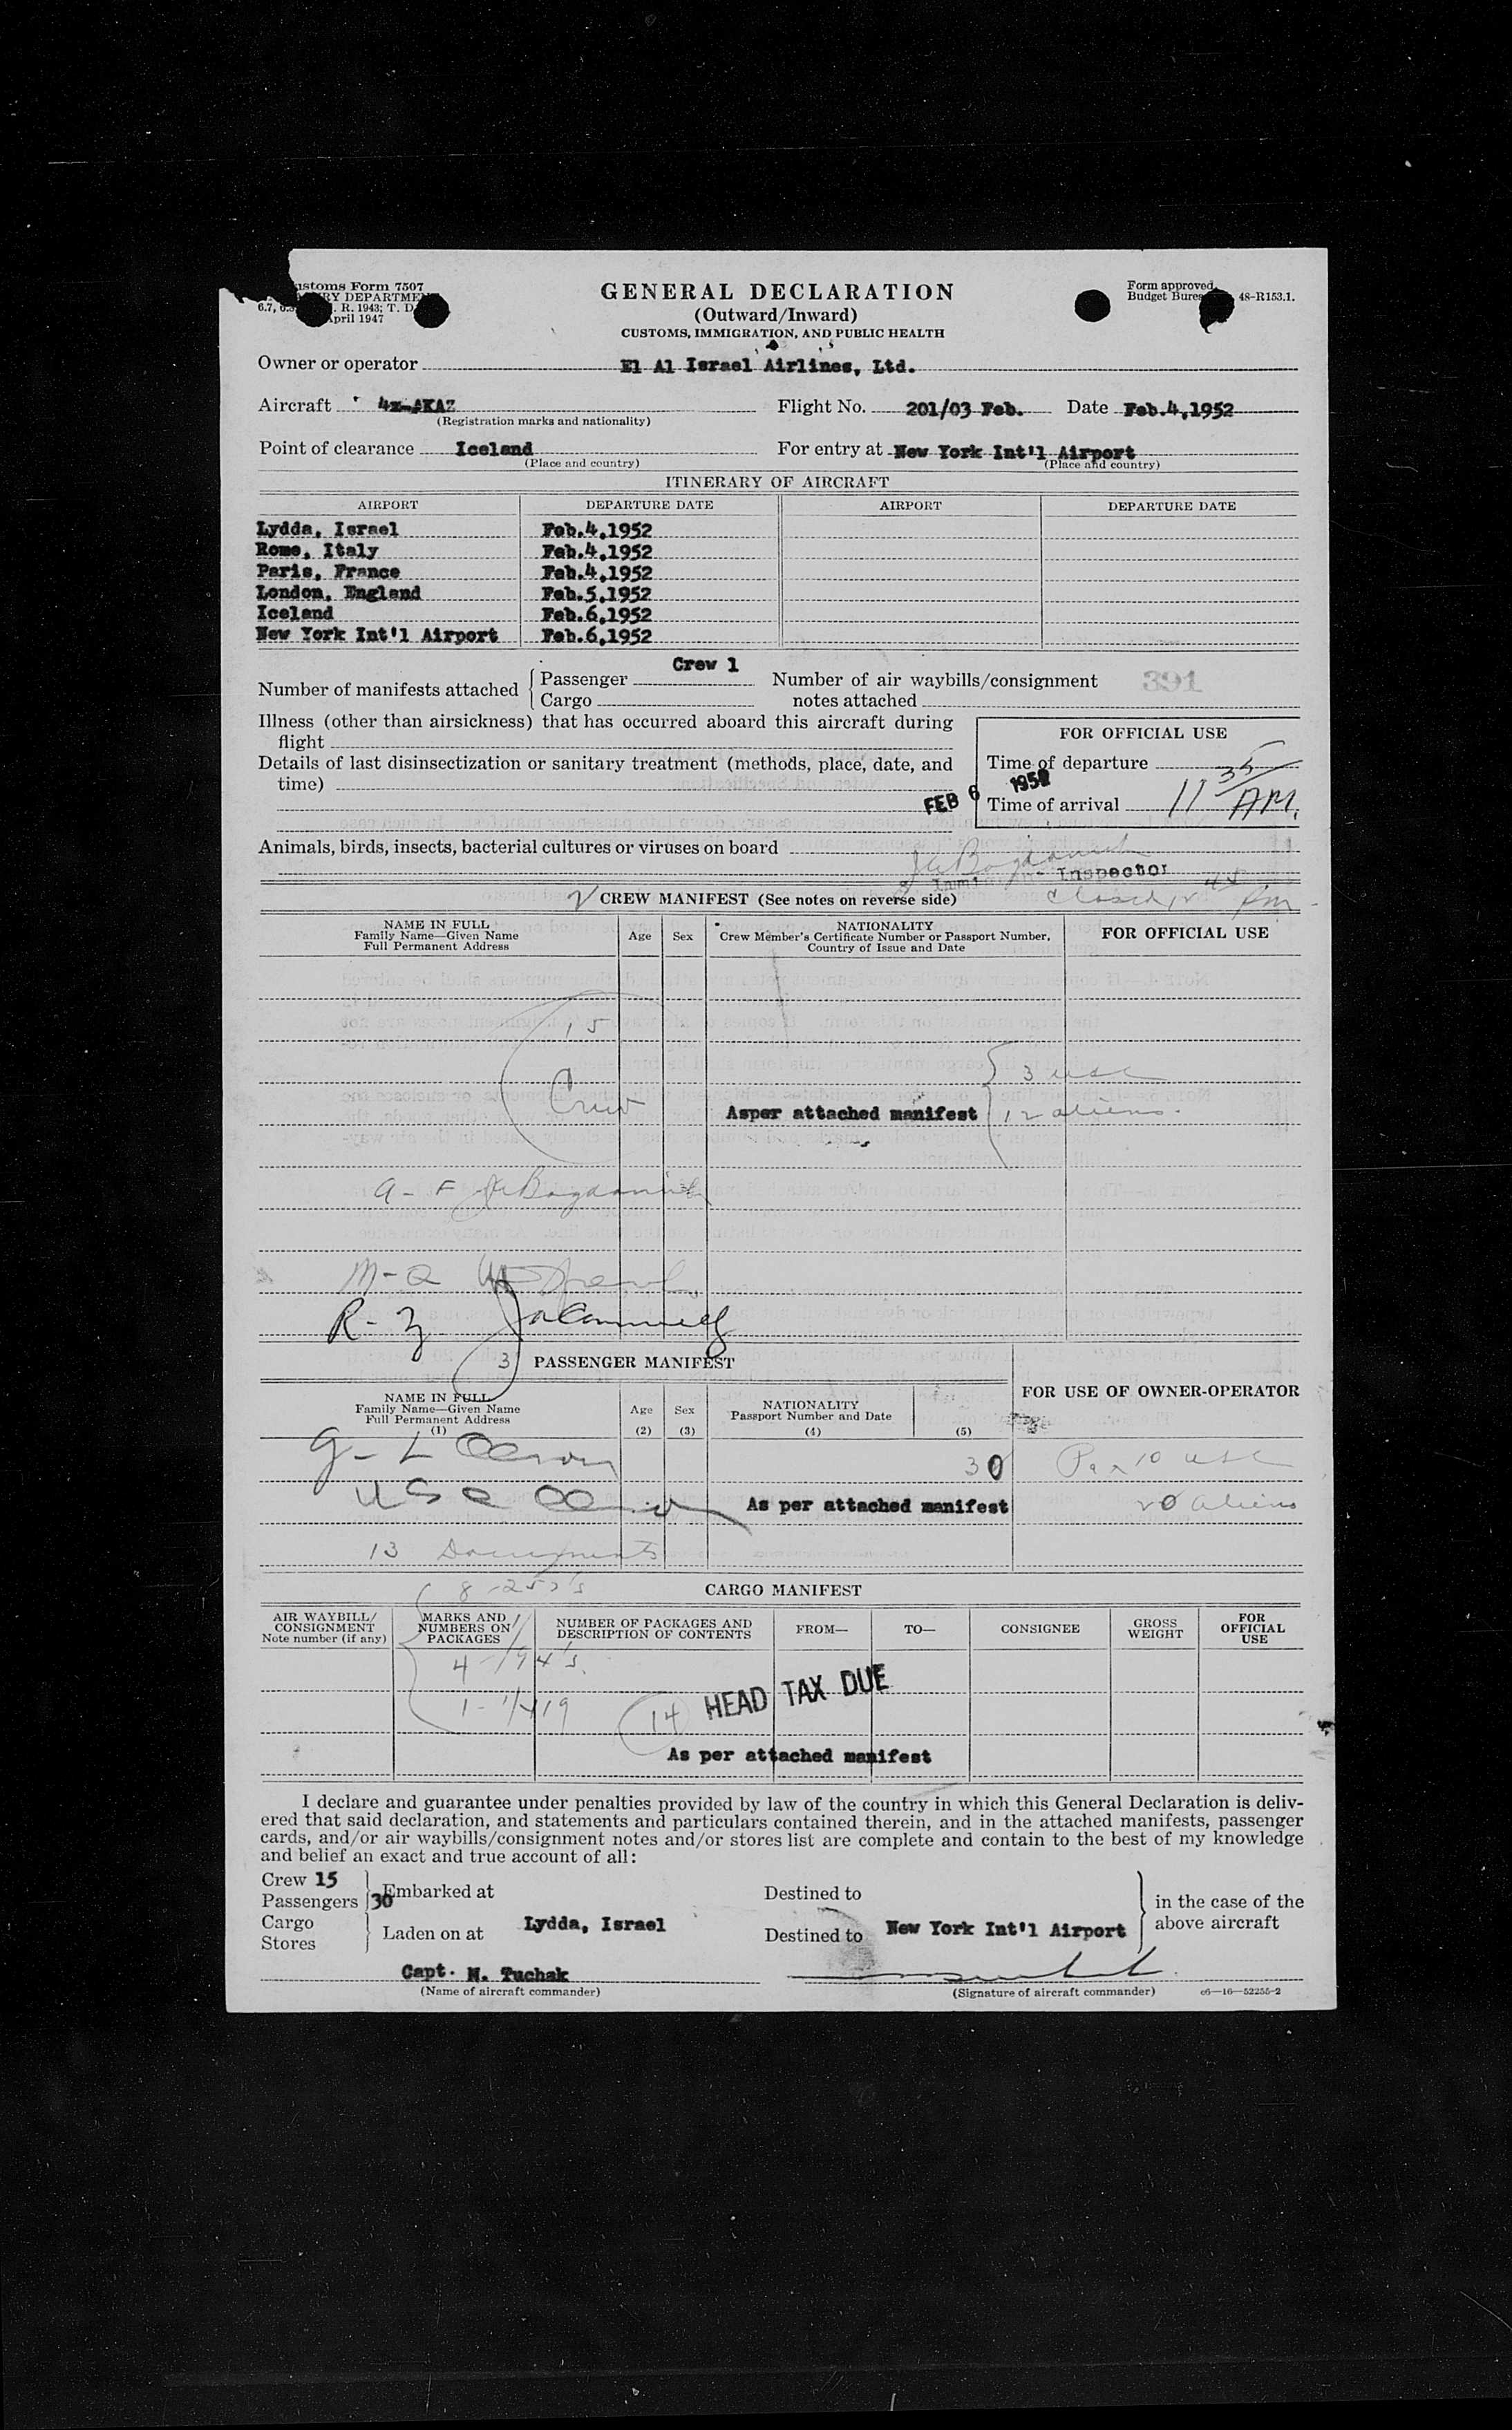 Customs Form 7507
GENERAL DECLARATION
Form approved.
TREASURY DEPARTMENT
(Outward/Inward)
Budget Bureau 48-R153.1.
R. 1943; T. D.
April 1947
CUSTOMS, IMMIGRATION, AND PUBLIC HEALTH
Owner or operator El Al Israel Airlines, Ltd.
Aircraft 4x-AKAZ Flight No. 201/03 Feb. Date Feb.4,1952
(Registration marks and nationality)
Point of clearance Iceland For entry at New York Int'l Airport
(Place and country) (Place and country)
ITINERARY OF AIRCRAFT
AIRPORT DEPARTURE DATE AIRPORT DEPARTURE DATE
Lydda, Israel Feb.4,1952
Rome, Italy Feb.4,1952
Paris, France Feb.4,1952
London, England Feb.5,1952
Iceland Feb.6,1952
New York Int'l Airport Feb.6,1952
Crew 1
Number of manifests attached Passenger
Cargo
Number of air waybills/consignment
notes attached
391
Illness (other than airsickness) that has occurred aboard this aircraft during
flight
FOR OFFICIAL USE
Details of last disinsectization or sanitary treatment (methods, place, date, and
time)
Time of departure
FEB 6 1952
Time of arrival 11 35 AM.
Animals, birds, insects, bacterial cultures or viruses on board
Inspector
CREW MANIFEST (See notes on reverse side)
Closed 12 45 pm
NAME IN FULL
Family Name—Given Name
Full Permanent Address
Age Sex
NATIONALITY
Crew Member's Certificate Number or Passport Number,
Country of Issue and Date
FOR OFFICIAL USE
15
Crew
3 usc
Asper attached manifest 12 aliens.
A - F
M-Q
R-Z
3 PASSENGER MANIFEST
FOR USE OF OWNER-OPERATOR
NAME IN FULL
Family Name—Given Name
Full Permanent Address
(1)
Age
(2)
Sex
(3)
NATIONALITY
Passport Number and Date
(4)
(5)
G - L
30 Pax 10 usc
As per attached manifest 20 aliens
13 Documents
8 -257's
CARGO MANIFEST
AIR WAYBILL/
CONSIGNMENT
Note number (if any)
MARKS AND
NUMBERS ON
PACKAGES
NUMBER OF PACKAGES AND
DESCRIPTION OF CONTENTS
FROM—
TO—
CONSIGNEE
GROSS
WEIGHT
FOR
OFFICIAL
USE
14 HEAD TAX DUE
As per attached manifest
I declare and guarantee under penalties provided by law of the country in which this General Declaration is deliv-
ered that said declaration, and statements and particulars contained therein, and in the attached manifests, passenger
cards, and/or air waybills/consignment notes and/or stores list are complete and contain to the best of my knowledge
and belief an exact and true account of all:
Crew 15
Passengers 30 Embarked at Destined to in the case of the
Cargo above aircraft
Stores Laden on at Lydda, Israel Destined to New York Int'l Airport
Capt. N. Tuchak
(Name of aircraft commander) (Signature of aircraft commander) c6—16—52255-2